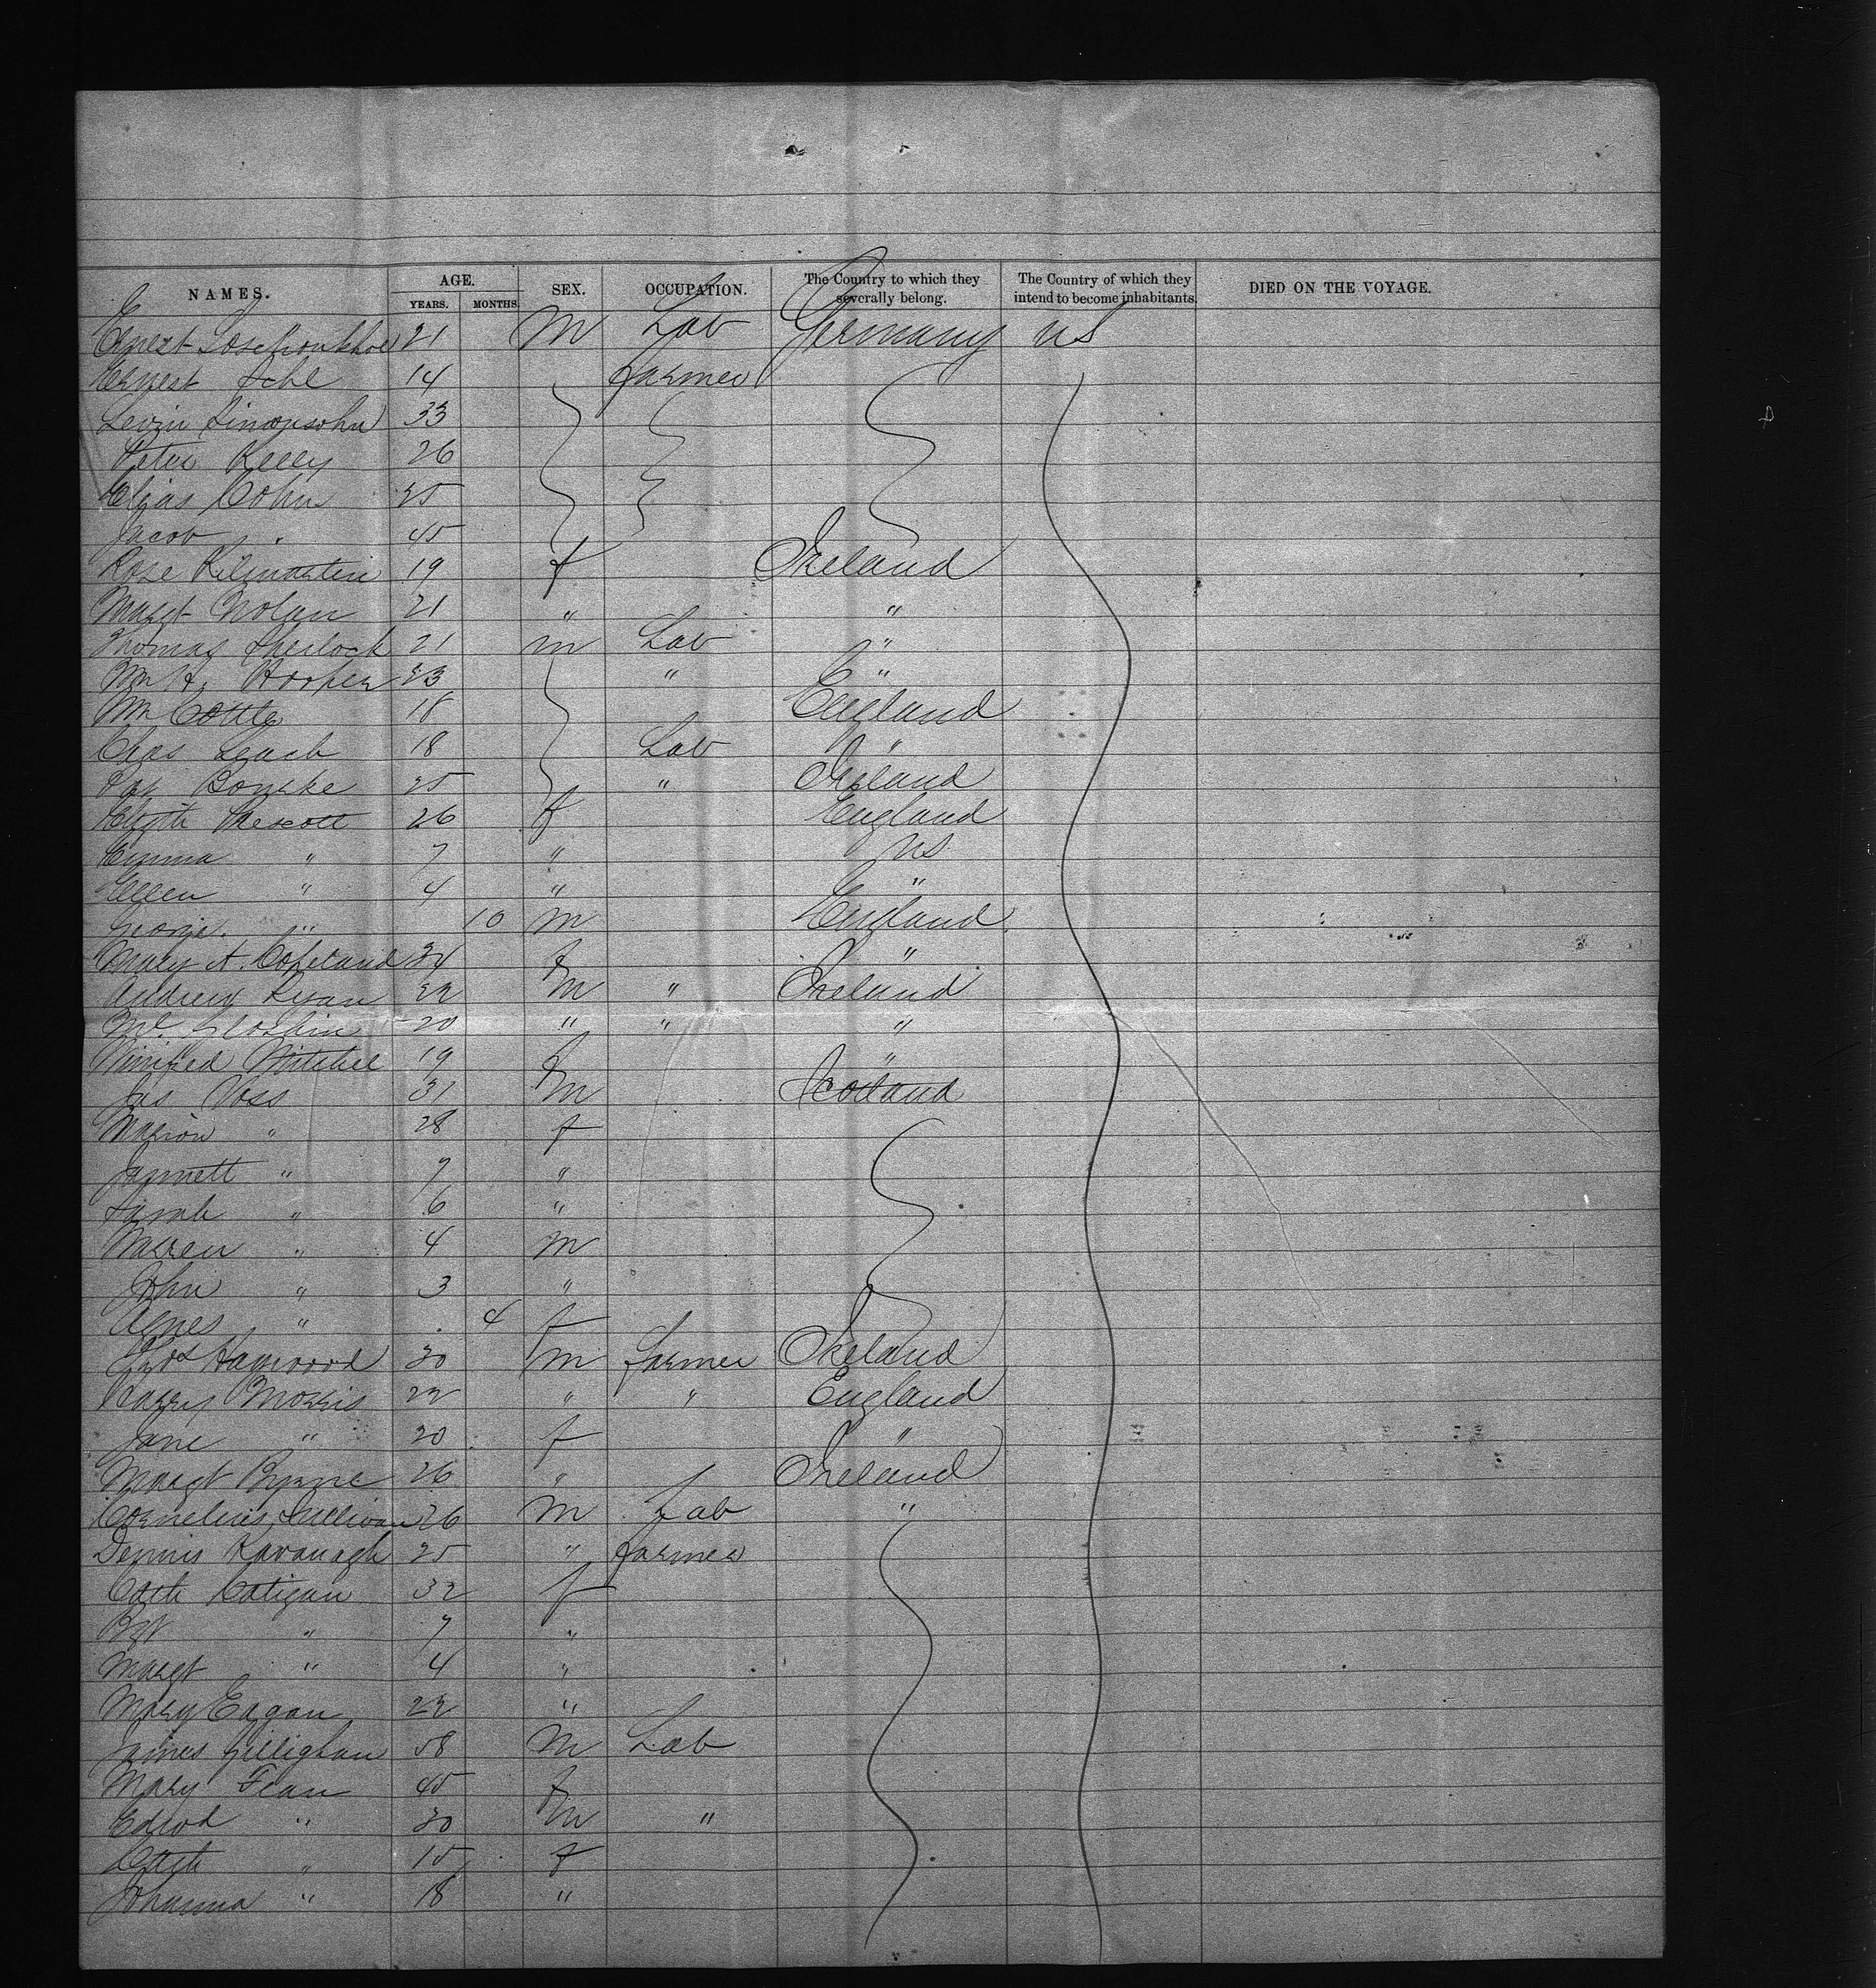 NAMES. AGE. SEX. OCCUPATION. The Country to which they severally belong. The Country of which they intend to become inhabitants. DIED ON THE VOYAGE.
YEARS. MONTHS.
Ernest 21 M Lab Germany US
Ernest 14 farmer
Levin Simonsohn 33
Peter Kelly 26
Elias Cohn 25
Jacob " 45
Rose Kilmartin 19 f Ireland
Margt Nolan 21 " "
Thomas Sherlock 21 m Lab "
Wm H. Hooper 23 " "
Wm Cottle 18 England
Chas Leach 18 Lab "
Pat Bourke 25 " Ireland
Edyth Prescott 26 f England
Emma " 7 " US
Ellen " 4 " "
George " 10 m England
Mary A. Copeland 34 f "
Andrew Ryan 22 m " Ireland
20 " " "
Winifred Mitchel 19 f "
Jas Voss 31 m Scotland
Marion " 28 f
Jannett " 7 "
Sarah " 6 "
Warren " 4 m
John " 3 "
Agnes " 4 f
Thos Haywood 30 m farmer Ireland
Harry Morris 22 " " England
Jane " 20 f "
Margt Byrne 26 " Ireland
Cornelius Sullivan 26 m Lab "
Dennis Kavanagh 25 " farmer
Cath Catigan 32 f
Bgt " 7 "
Margt " 4 "
Mary Eagan 22 "
James Gillighan 58 m Lab
Mary Fean 45 f
Edwd " 30 m "
Cath " 15 f
Johanna " 18 "